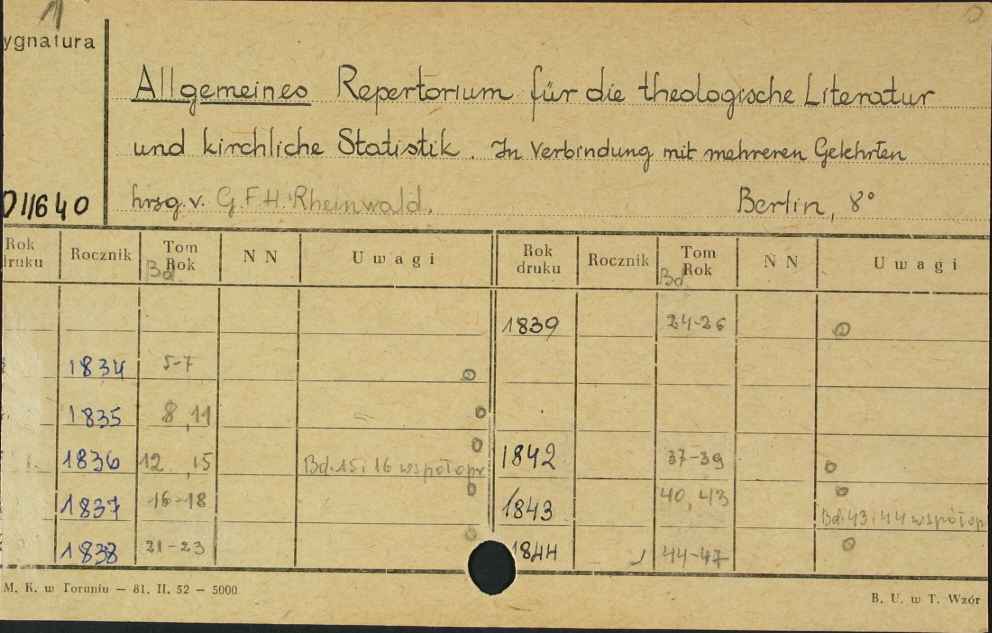 1
ygnatura
Allgemeines Repertorium für die theologische Literatur
und kirchliche Statistik. In Verbindung mit mehreren Gelehrten
hrsg. v. G.F.H. Rheinwald. Berlin, 8°
011640
Rok druku Rocznik Tom Rok Bd N N Uwagi Rok druku Rocznik Tom Rok Bd. N N Uwagi
1839 24-26
1834 5-7
1835 8, 11
1836 12, 15 Bd. 15 i 16 współopr 1842 37-39
1837 16-18 1843 40, 43 Bd. 43 i 44 współop
1838 21-23 1844 44-47
M. K. w Toruniu — 81. II. 52 — 5000
B. U. w T. Wzór